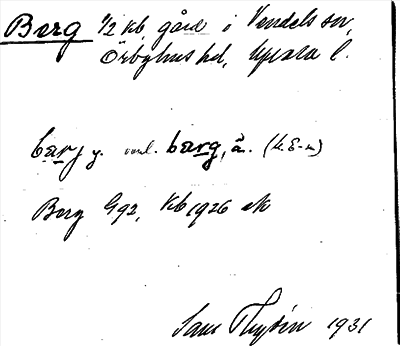 Berg 1/2 kb, gård i Vendels sn,
Örbyhus hd, Upsala l.
barj y. vanl. barg, ä. (K. E-n)
Berg G92, Kb 1926 ek
Sam Thysén 1931